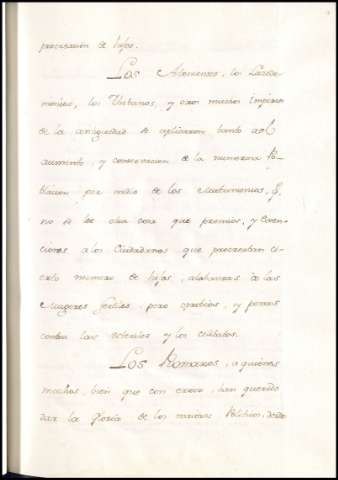 procreación de hijos.
Los Atenienses, los Lacede-
monios, los Thebanos, y otros muchos Imperios
de la antiguedad se aplicaron tanto al
aumento, y conservacion de la numerosa Po-
blacion por medio de los Matrimonios, q.
no se lee otra cosa que premios, y Exen-
ciones a los Ciudadanos que procreaban ci-
erto numero de hijos, alabanzas de las
Mugeres fertiles, pero castas, y penas
contra las esteriles y los celibatos.
Los Romanos, a quienes
muchos, bien que con error, han querido
dar la Gloria de los